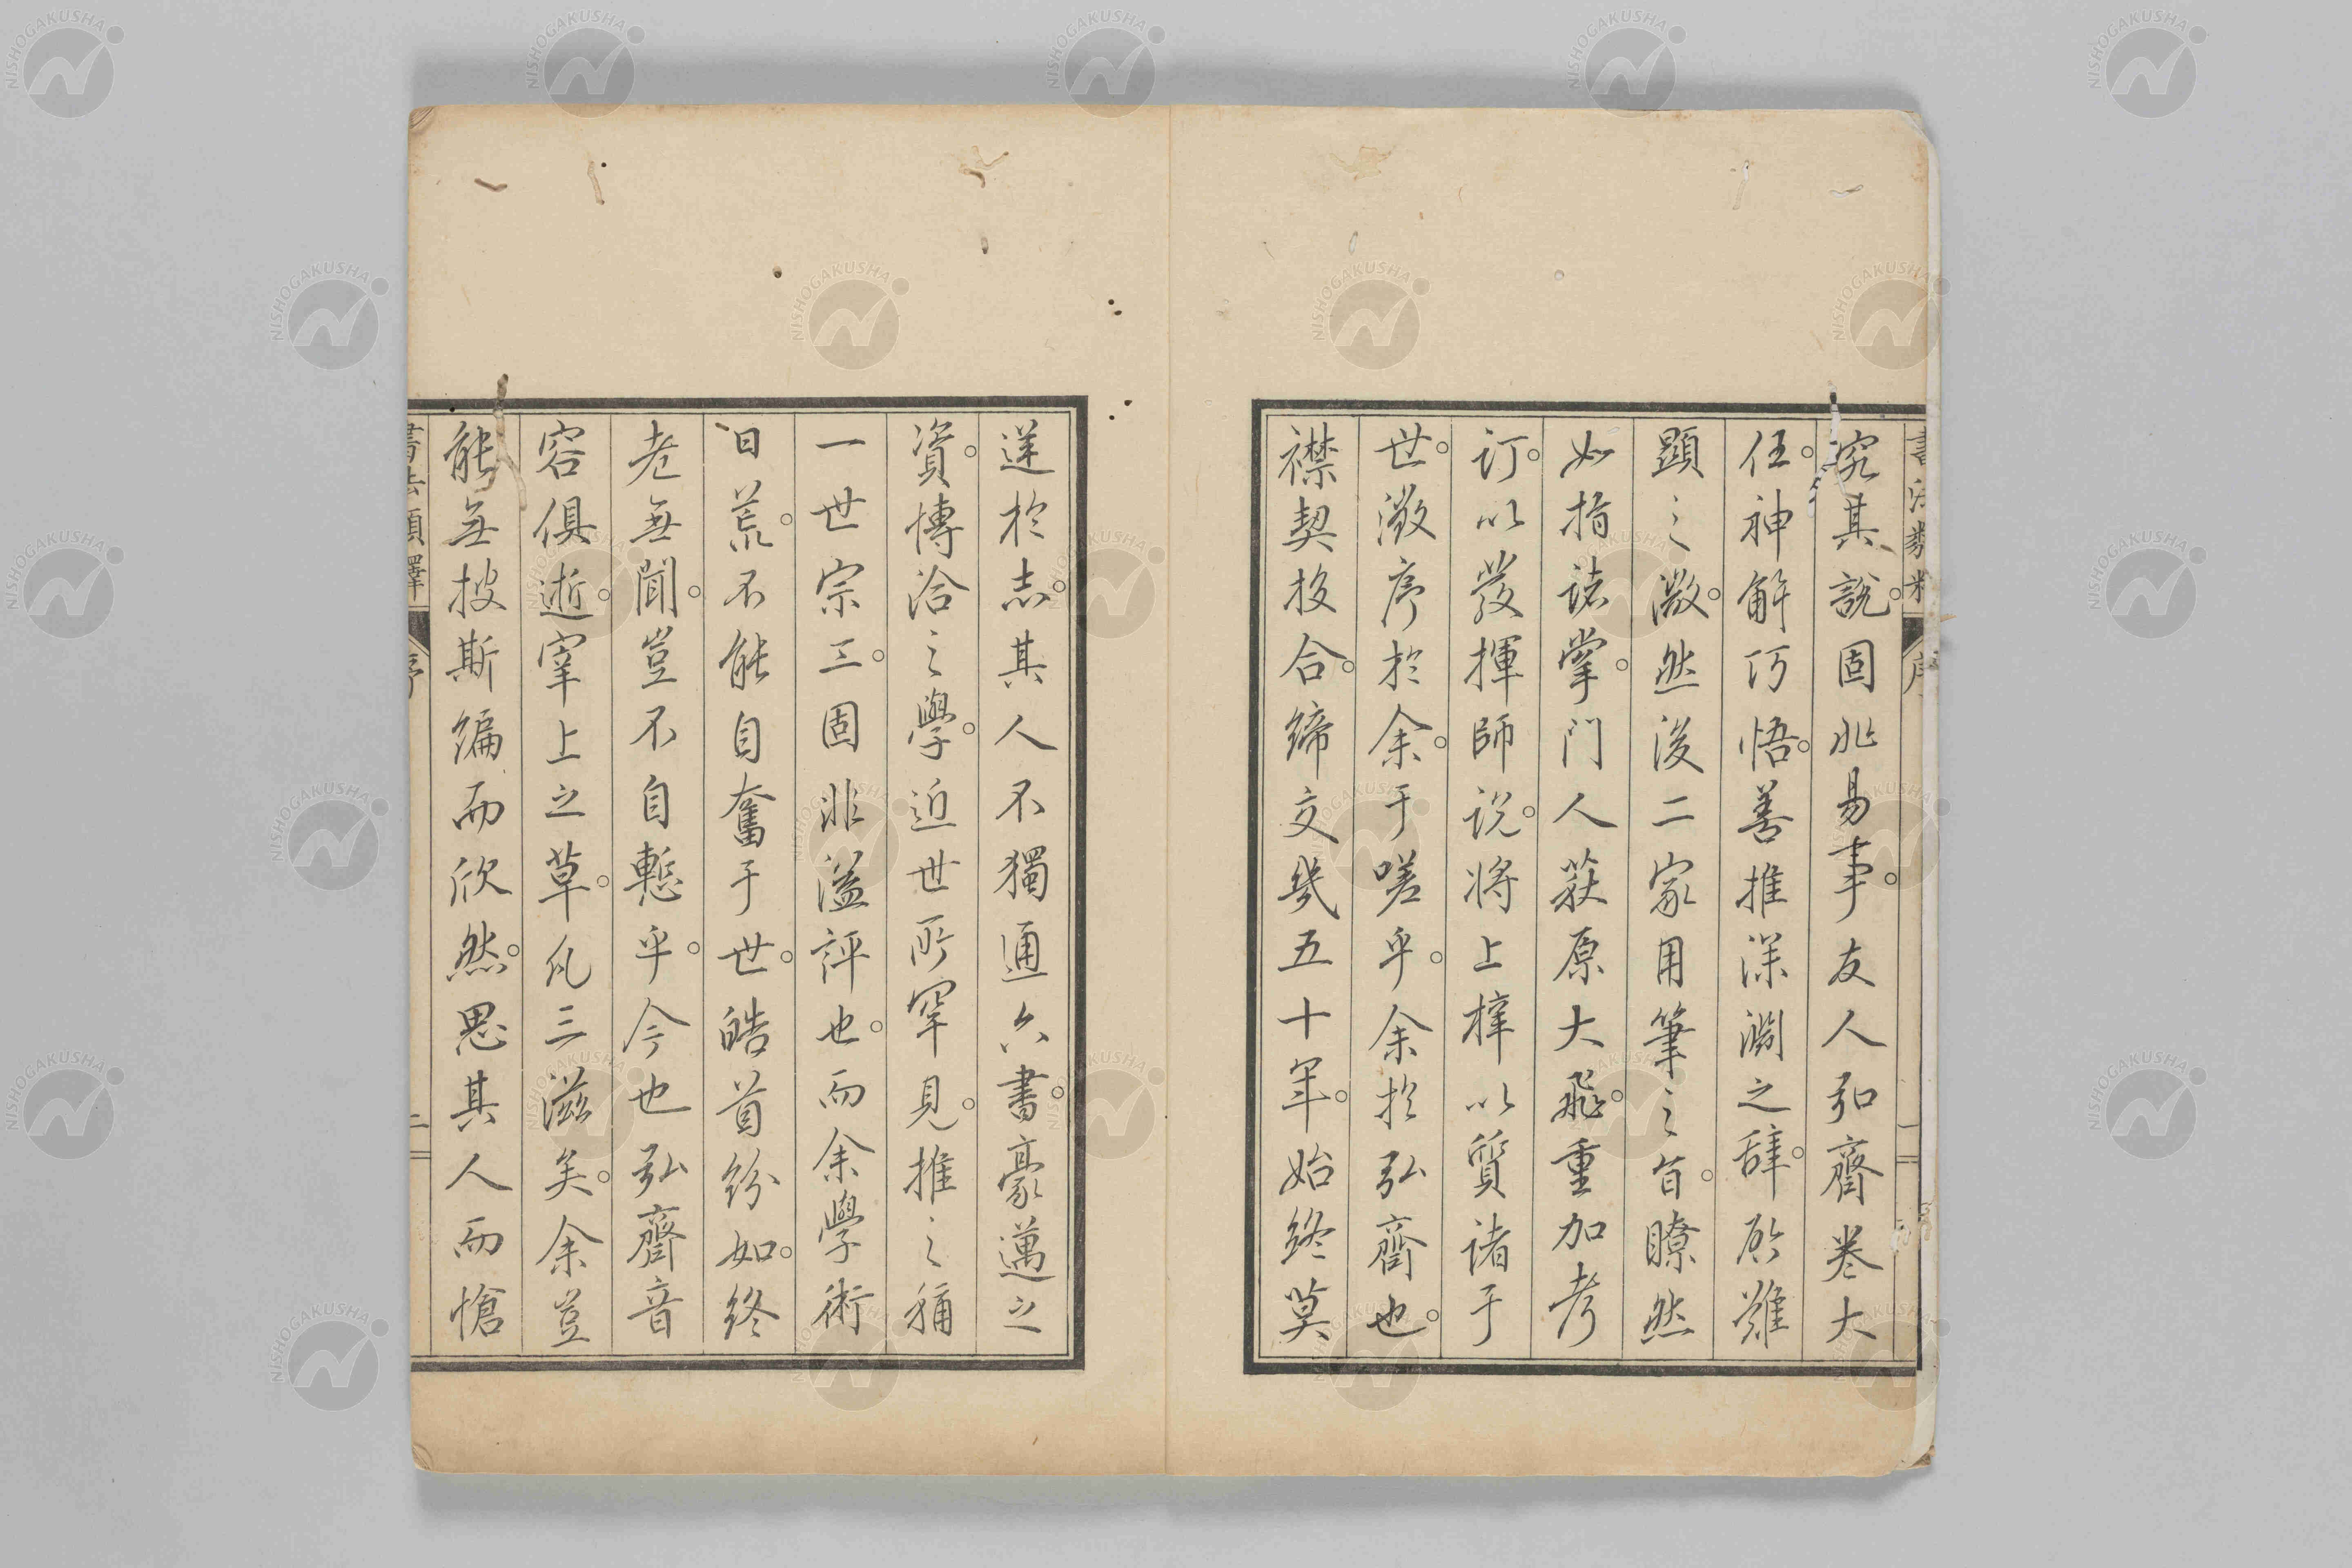 究其說。固非易事。友人弘齋卷大
任。神解巧悟。善推深淵之辭。啟難
顯之微。然後二家用筆之旨。瞭然
如指諸掌。門人荻原大飛。重加考
訂。以發揮師說。將上梓以質諸于
世。徵序於余。于嗟乎。余於弘齋也。
襟契投合。締交幾五十年。始終莫
逆於志。其人不獨通六書。豪邁之
資。博洽之學。近世所罕見。推之稱
一世宗工。固非溢評也。而余學術
日荒。不能自奮于世。皓首紛如。終
老無聞。豈不自慙乎。今也弘齋音
容俱逝。宰上之草。凡三滋矣。余豈
能無披斯編而欣然。思其人而愴
書法類釋 序 二